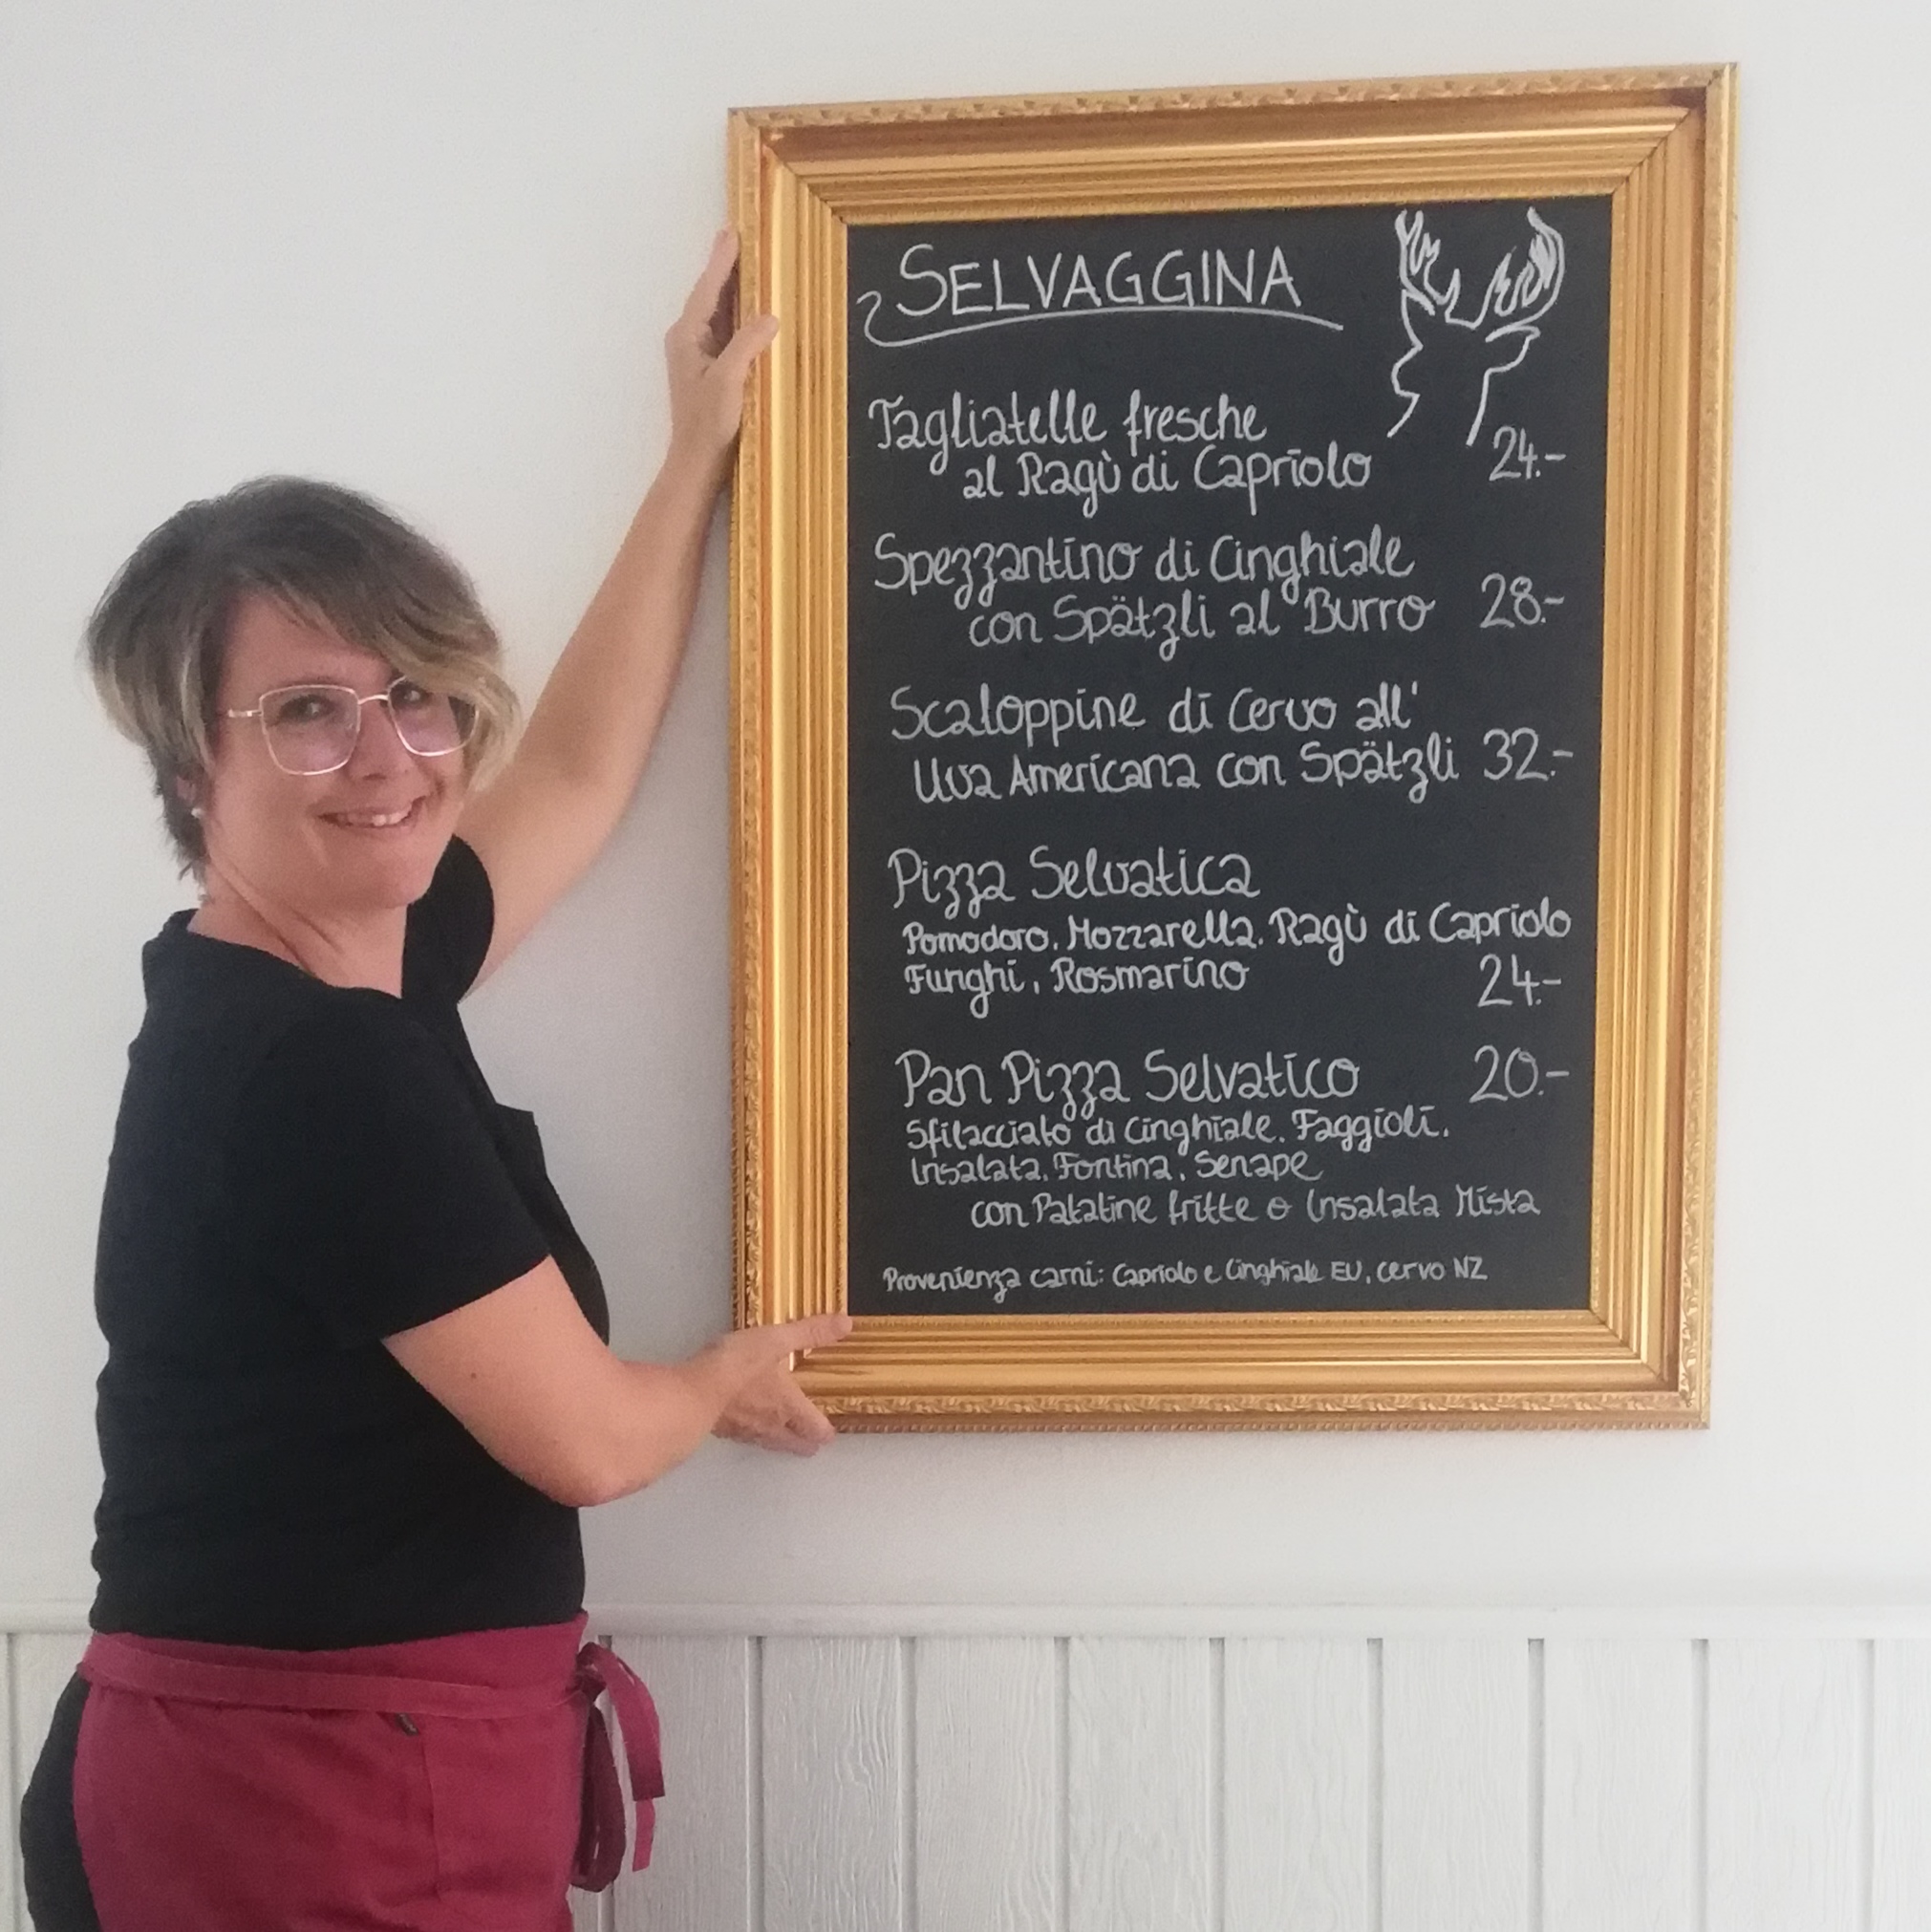 SELVAGGINA
Tagliatelle fresche
al Ragù di Capriolo 24.-
Spezzantino di Cinghiale
con Spätzli al Burro 28.-
Scaloppine di Cervo all'
Uva Americana con Spätzli 32.-
Pizza Selvatica
Pomodoro, Mozzarella, Ragù di Capriolo
Funghi, Rosmarino 24.-
Pan Pizza Selvatico 20.-
Sfilacciato di Cinghiale, Faggioli,
Insalata, Fontina, Senape
con Patatine fritte o Insalata Mista
Provenienza carni: Capriolo e Cinghiale EU, cervo NZ